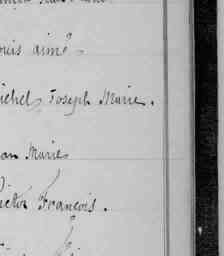 ouis aimé
ichel, Joseph Marie.
an Marie
ictor François.